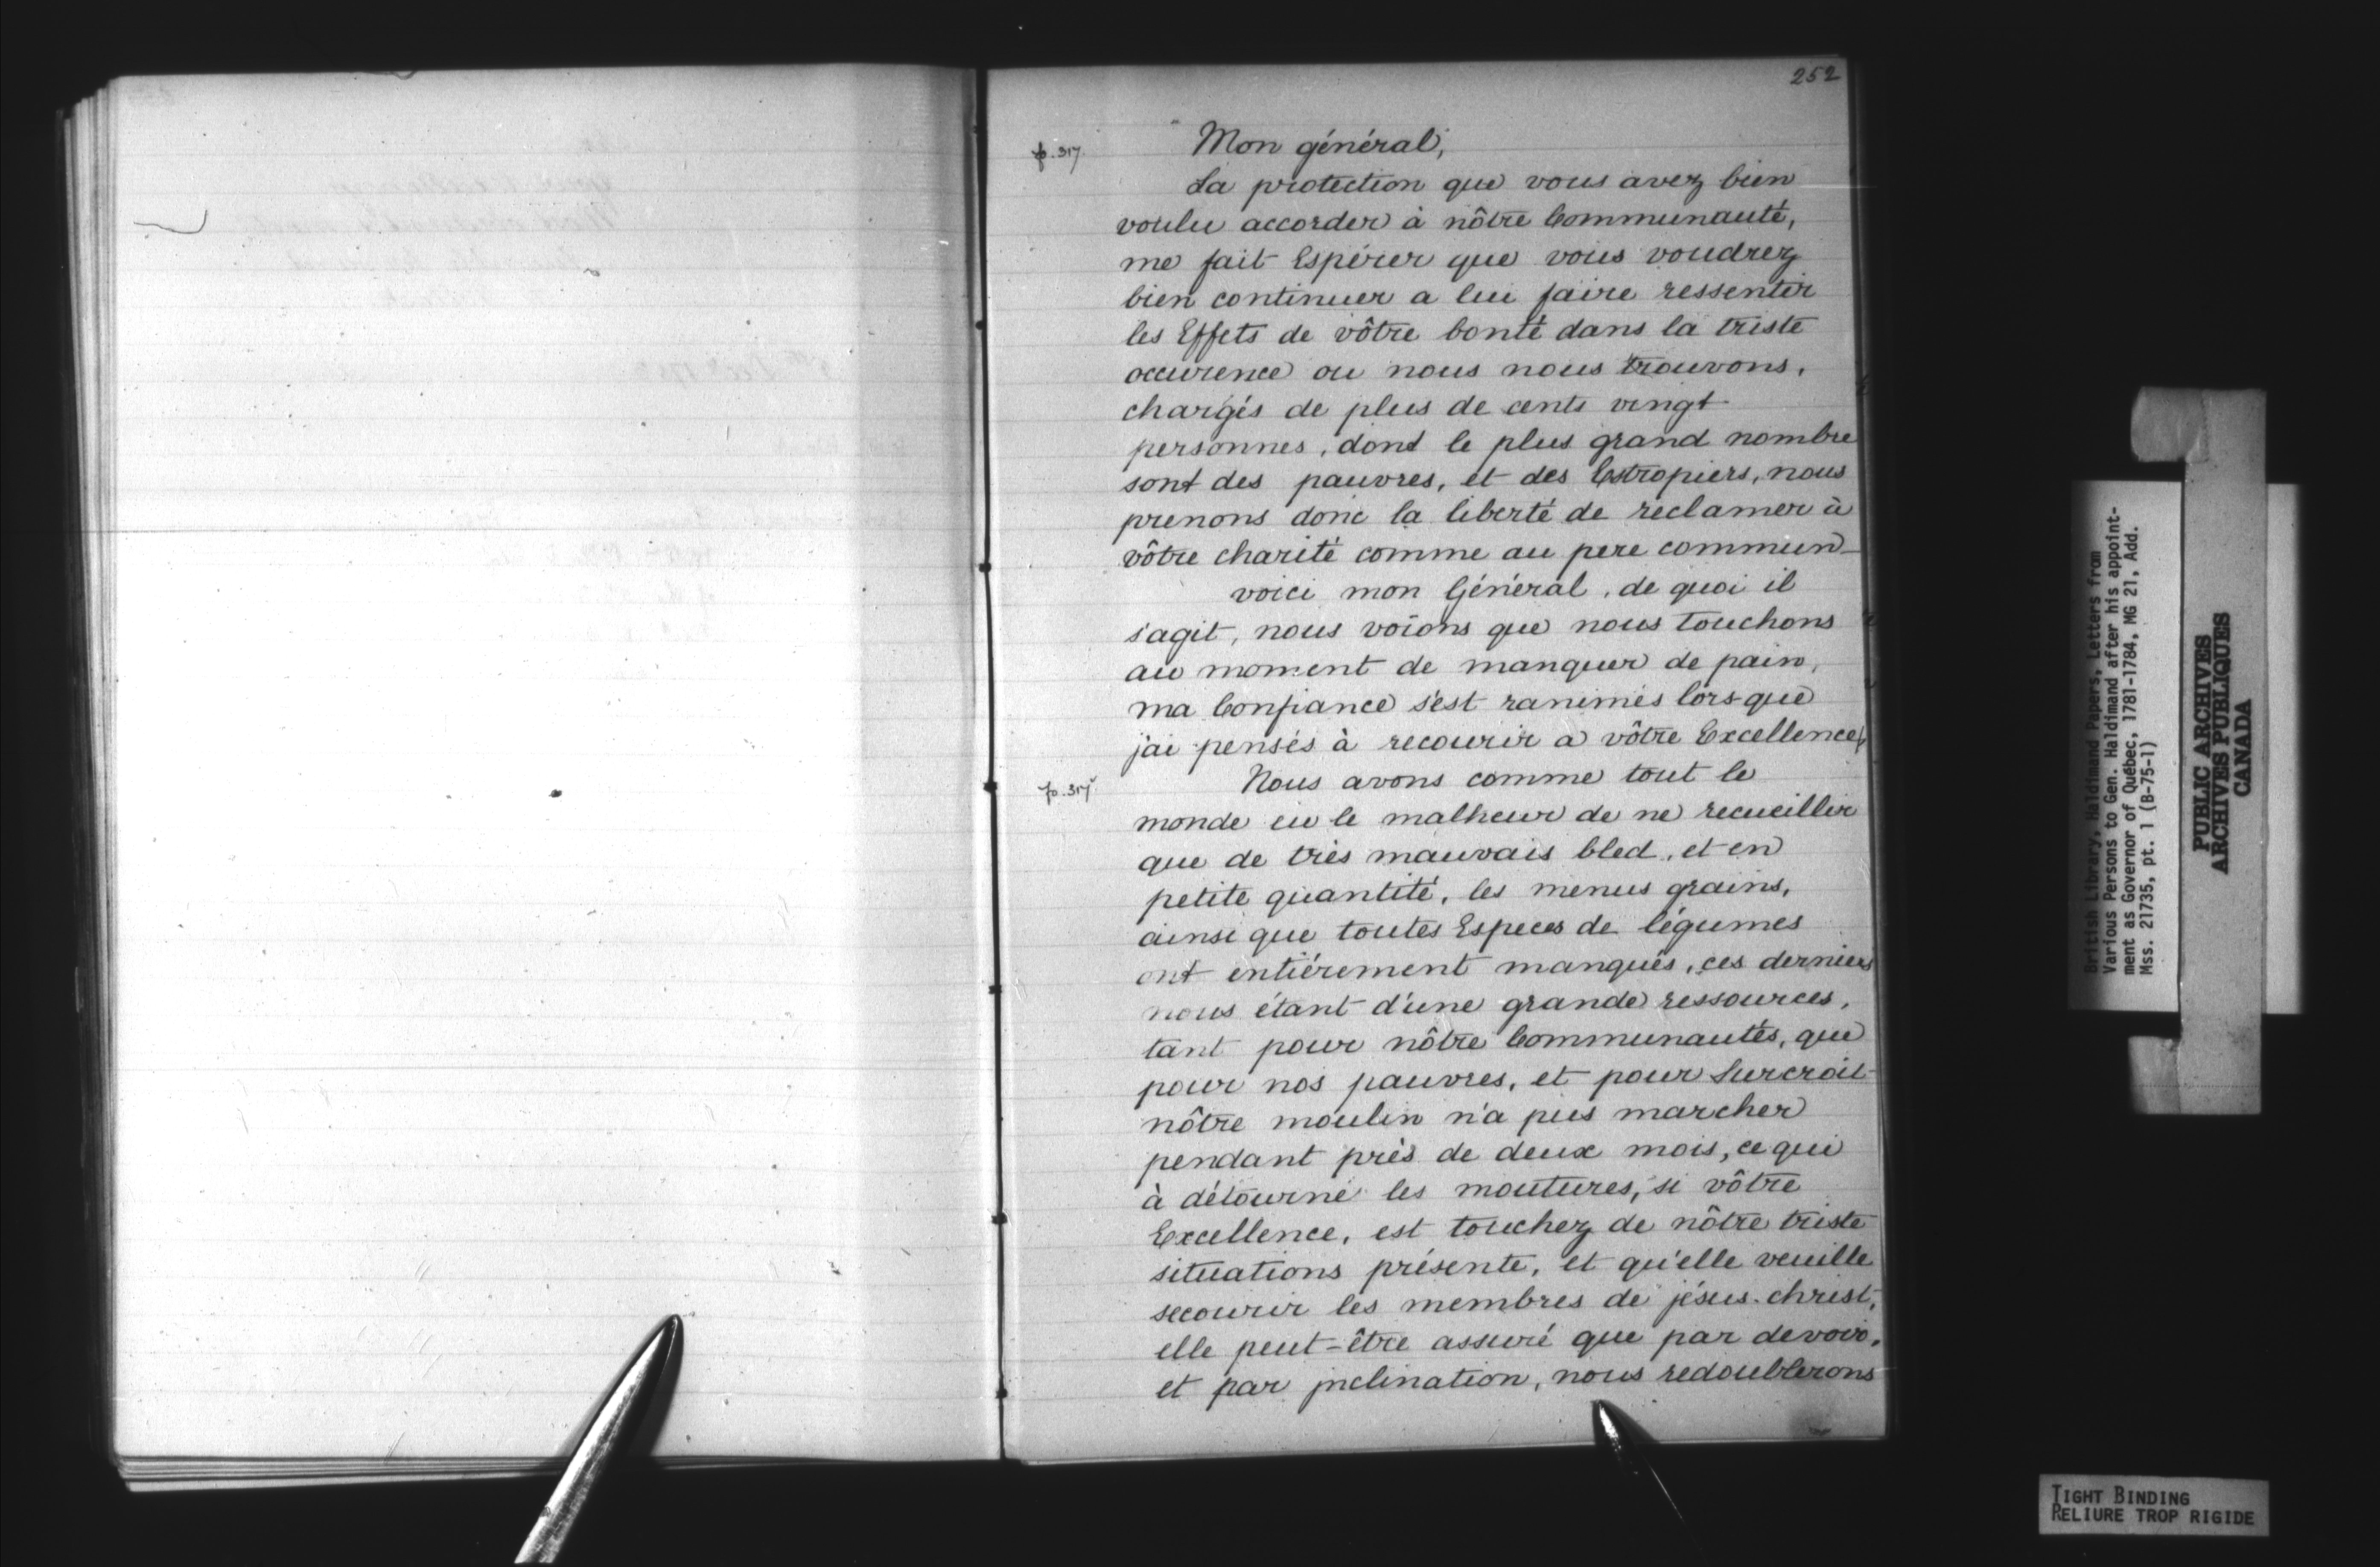 252
fo. 317.
Mon général,
La protection que vous avez bien
voulu accorder à nôtre Communauté,
me fait Espérer que vous voudrez
bien continuer a lui faire ressentir
les Effets de vôtre bonté dans la triste
occurence ou nous nous trouvons,
chargés de plus de cents vingt
personnes, dont le plus grand nombre
sont des pauvres, et des Estropiers, nous
prenons donc la liberté de réclamer à
vôtre charité comme au pere commun
voici mon Général, de quoi il
s'agit, nous voïons que nous touchons
au moment de manquer de pain,
ma Confiance s'est ranimés lors-que
j'ai pensés à recourir a vôtre Excellence,
fo. 317v
Nous avons comme tout le
monde eu le malheur de ne recueillir
que de très mauvais bled, et en
petite quantité, les menus grains,
ainsi que toutes Especes de légumes
ont entiérement manqués, ces derniers
nous étant d'une grande ressources,
tant pour nôtre Communautés, que
pour nos pauvres, et pour Surcroit
nôtre moulin n'a pus marcher
pendant près de deux mois, ce qui
à détourné les moutures, si vôtre
Excellence, est touchez de nôtre triste
situations présente, et qu'elle veuille
secourir les membres de jésus-christ,
elle peut-être assuré que par devoir,
et par jnclination, nous redoublerons
British Library, Haldimand Papers, Letters from
Various Persons to Gen. Haldimand after his appoint-
ment as Governor of Québec, 1781-1784, MG 21, Add.
Mss. 21735, pt. 1 (B-75-1)
PUBLIC ARCHIVES
ARCHIVES PUBLIQUES
CANADA
TIGHT BINDING
RELIURE TROP RIGIDE